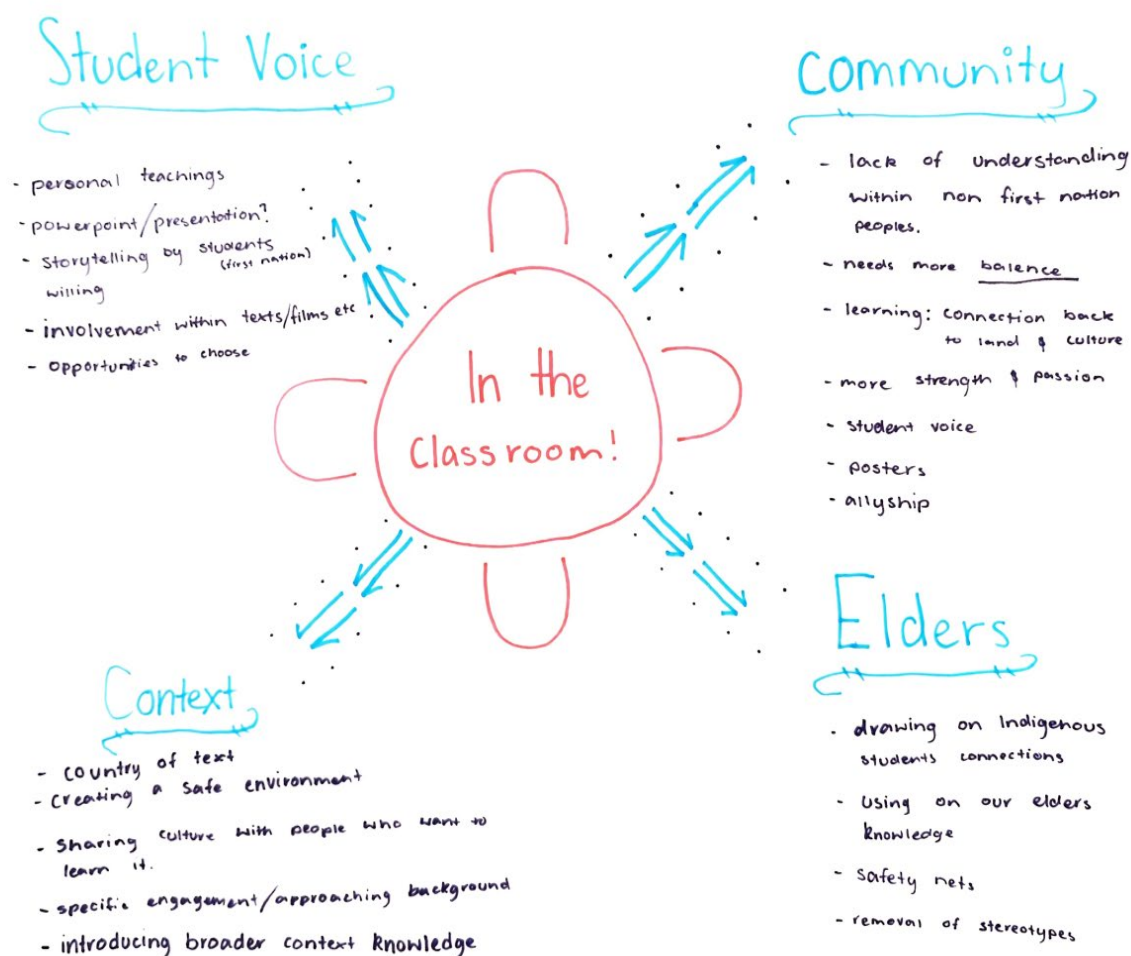 Student Voice
- personal teachings
- powerpoint/presentation?
- storytelling by students
(first nation)
willing
- involvement within texts/films etc
- opportunities to choose
community
- lack of understanding
within non first nation
peoples.
- needs more balence
- learning: connection back
to land & culture
- more strength & passion
- student voice
- posters
- allyship
In the
classroom!
Context
- country of text
- creating a safe environment
- sharing culture with people who want to
learn it.
- specific engagement/approaching background
- introducing broader context knowledge
Elders
- drawing on Indigenous
students connections
- using on our elders
knowledge
- safety nets
- removal of stereotypes